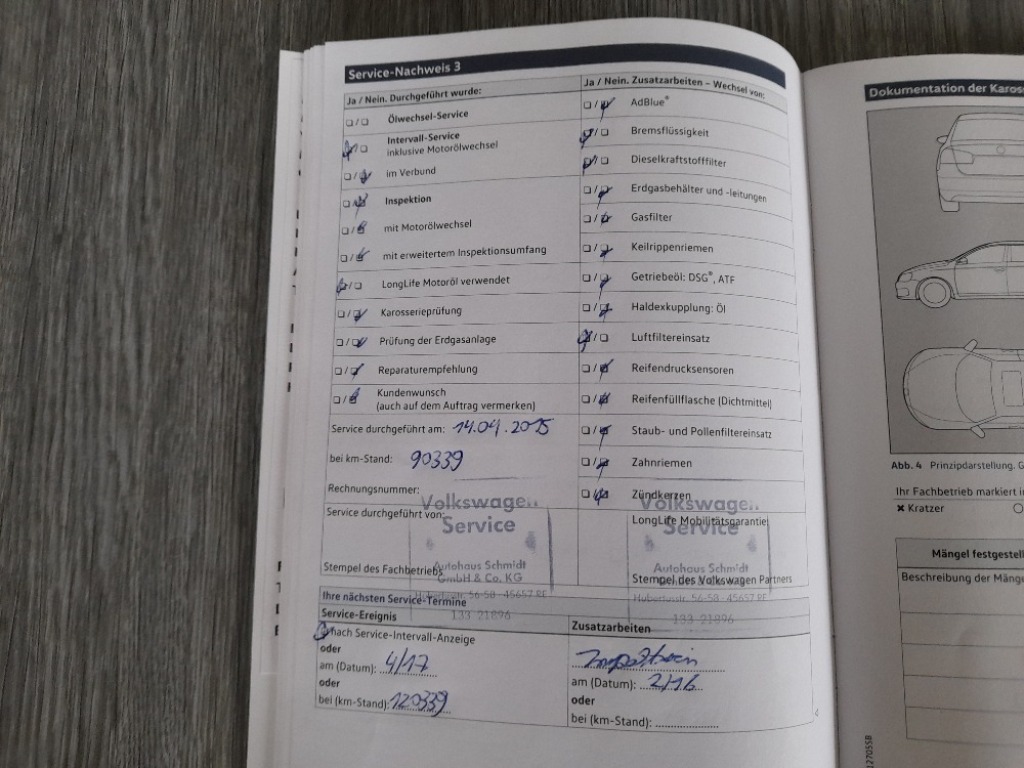 Service-Nachweis 3
Ja / Nein. Durchgeführt wurde:
Ölwechsel-Service
Intervall-Service
inklusive Motorölwechsel
im Verbund
Inspektion
mit Motorölwechsel
mit erweitertem Inspektionsumfang
LongLife Motoröl verwendet
Karosserieprüfung
Prüfung der Erdgasanlage
Reparaturempfehlung
Kundenwunsch
(auch auf dem Auftrag vermerken)
Service durchgeführt am: 14.04.2015
bei km-Stand: 90339
Rechnungsnummer:
Service durchgeführt von:
Volkswagen
Service
Autohaus Schmidt
GmbH & Co. KG
Hubertusstr. 56-58 · 45657 RE
133 21896
Stempel des Fachbetriebs
Ja / Nein. Zusatzarbeiten – Wechsel von:
AdBlue®
Bremsflüssigkeit
Dieselkraftstofffilter
Erdgasbehälter und -leitungen
Gasfilter
Keilrippenriemen
Getriebeöl: DSG®, ATF
Haldexkupplung: Öl
Luftfiltereinsatz
Reifendrucksensoren
Reifenfüllflasche (Dichtmittel)
Staub- und Pollenfiltereinsatz
Zahnriemen
Zündkerzen
LongLife Mobilitätsgarantie
Volkswagen
Service
Autohaus Schmidt
GmbH & Co. KG
Hubertusstr. 56-58 · 45657 RE
133 21896
Stempel des Volkswagen Partners
Ihre nächsten Service-Termine
Service-Ereignis
nach Service-Intervall-Anzeige
oder
am (Datum): 4/17
oder
bei (km-Stand): 120339
Zusatzarbeiten
am (Datum): 2/16
oder
bei (km-Stand):
Dokumentation der Kaross
Abb. 4 Prinzipdarstellung. G
Ihr Fachbetrieb markiert in
✖ Kratzer
Mängel festgestell
Beschreibung der Mänge